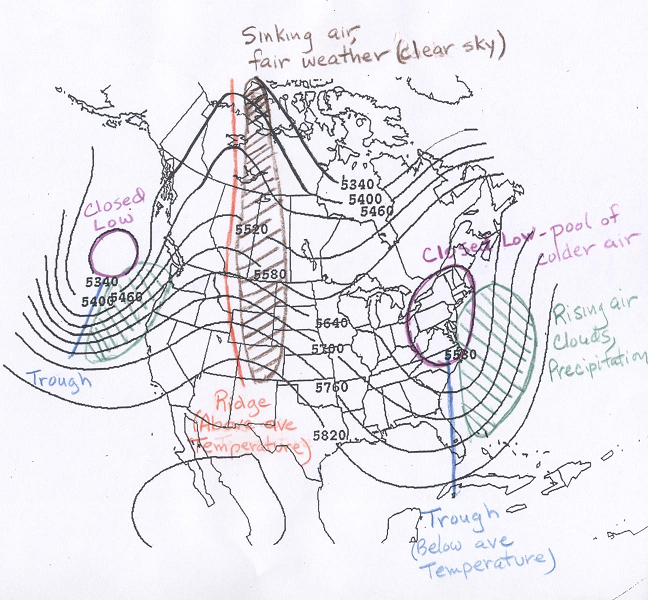 Sinking air,
fair weather (clear sky)
5340
5400
5460
Closed
Low
5520
Closed Low - pool of
colder air
5340
5400
5460
5580
Rising air
clouds,
Precipitation
5640
5700
5580
Trough
5760
Ridge
(Above ave
Temperature)
5820
Trough
(Below ave
Temperature)